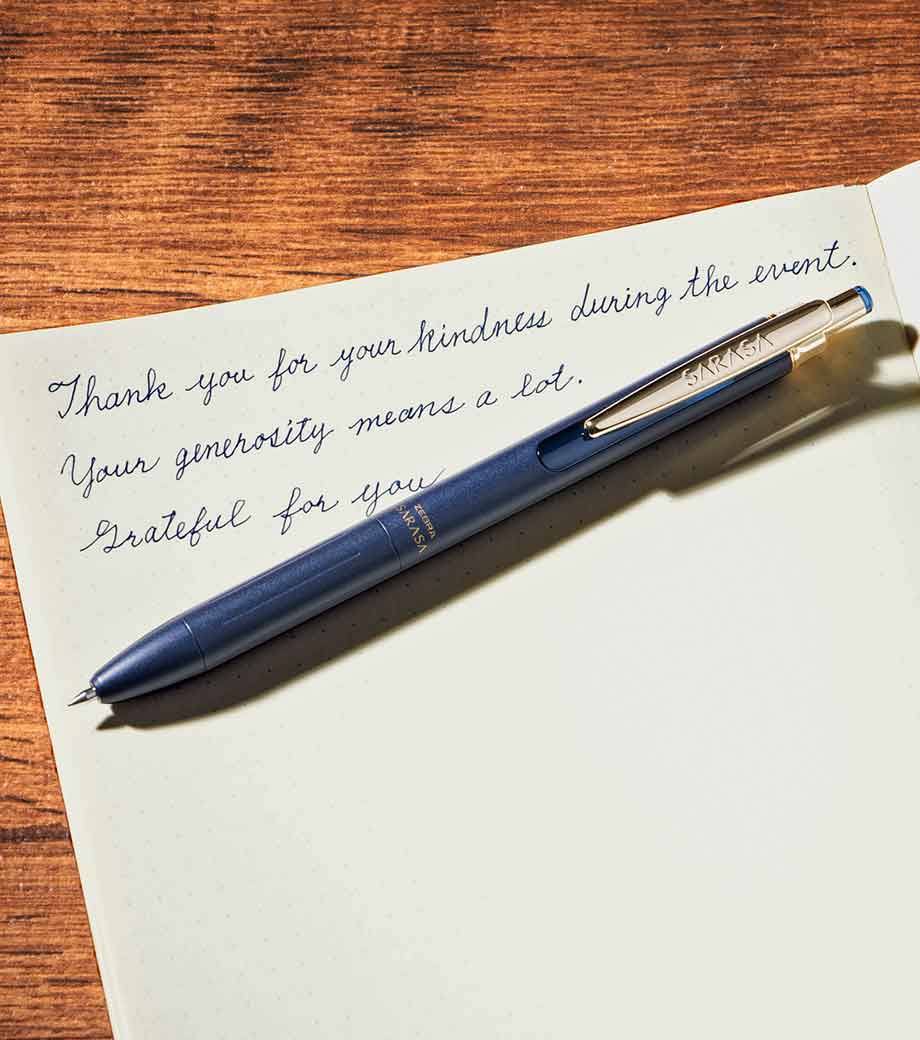 Thank you for your kindness during the event.
Your generosity means a lot.
Grateful for you
SARASA
ZEBRA
SARASA